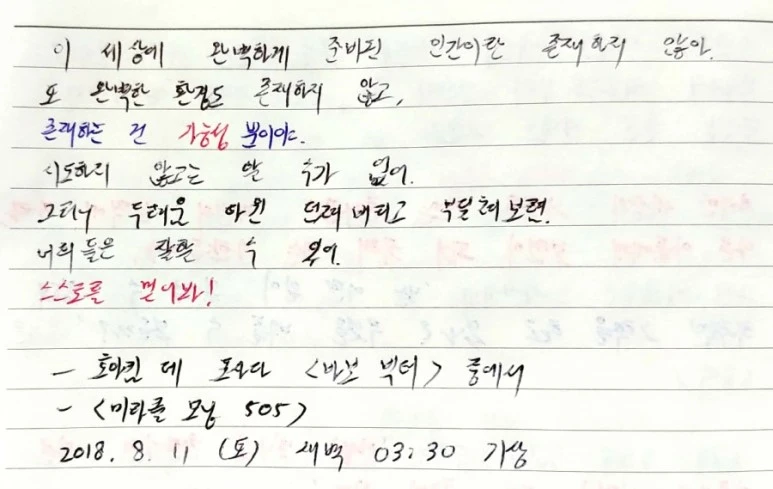 이 세상에 완벽하게 준비된 인간이란 존재하지 않아.
또 완벽한 환경도 존재하지 않고,
존재하는 건 가능성 뿐이야.
시도하지 않고는 알 수가 없어.
그러니 두려움 따윈 던져버리고 부딪혀보렴.
너희들은 잘할 수 있어.
스스로를 믿어봐!
- 호아킴 데 포사다 <바보 빅터> 중에서
- <미라클 모닝 505>
2018. 8. 11 (토) 새벽 03:30 기상